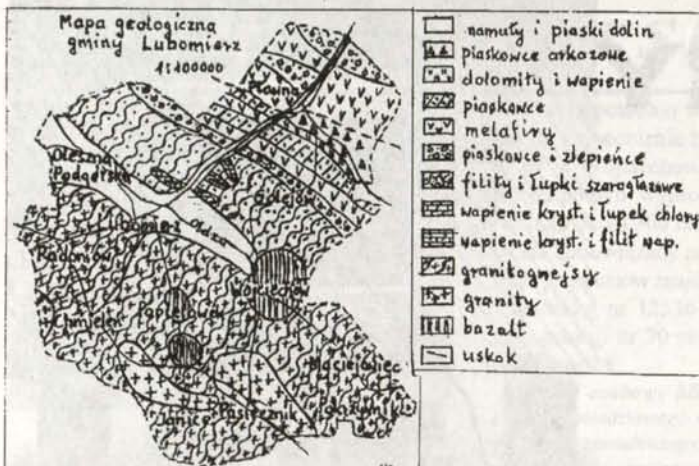 Mapa geologiczna
gminy Lubomierz
1:100000
Pławna
Oleszna
Podgórska
Golejów
Lubomierz
Radoniów
Wojciechów
Chmieleń
Popielówek
Maciejowiec
Janice
Pasiecznik
namuły i piaski dolin
piaskowce arkozowe
dolomity i wapienie
piaskowce
melafiry
piaskowce i zlepieńce
fility i łupki szarogłazowe
wapienie kryst. i łupek chloryt
wapienie kryst. i filit wap.
granitognejsy
granity
bazalt
uskok